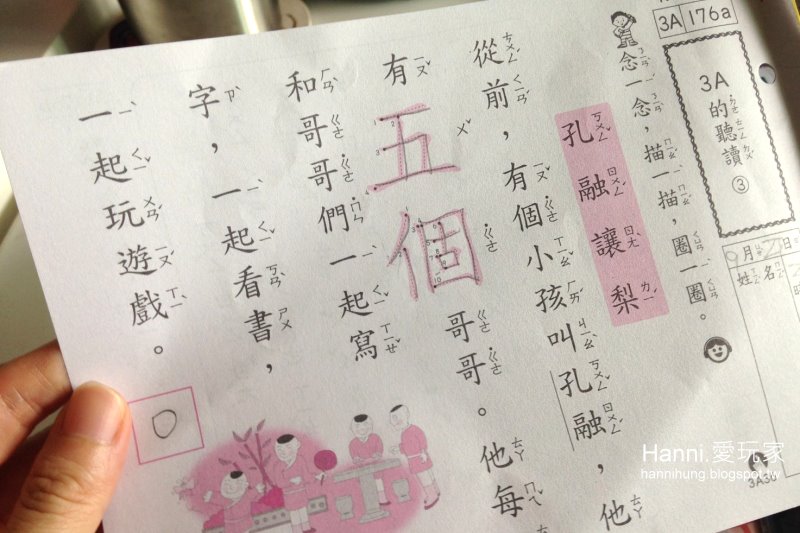 3A 176a
3A的聽讀③
9月 日
姓名
念一念，描一描，圈一圈。
孔融讓梨
從前，有個小孩叫孔融，他
有五個哥哥。他每
和哥哥們一起寫
字，一起看書，
一起玩遊戲。
Hanni.愛玩家
hannihung.blogspot.tw